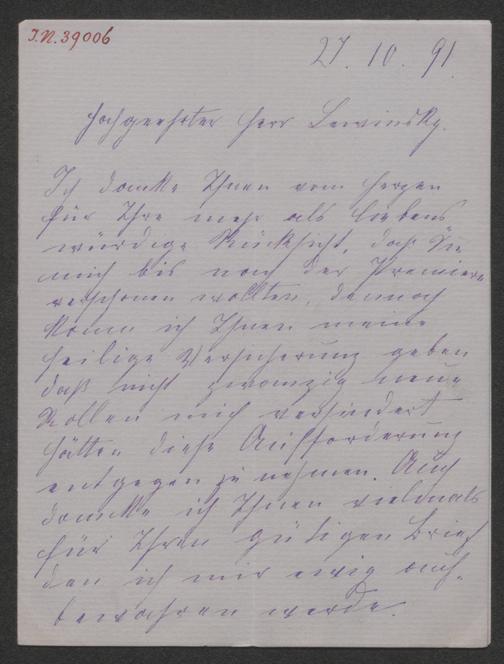 I.N. 39006
27. 10. 91.
Hochgeehrter Herr Lewinsky.
Ich dankke Ihnen vom Herzen
für Ihre mehr als liebens
würdige Rücksicht, daß Sie
mich bis nach der Premiere
verschonen wollten, dennoch
kann ich Ihnen meine
heilige Versicherung geben
daß nicht zwanzig neue
Rollen mich verhindert
hätten diese Aufforderung
entgegen zu nehmen. Auch
dankke ich Ihnen vielmals
für Ihren gütigen Brief
den ich mir ewig auf-
bewahren werde.